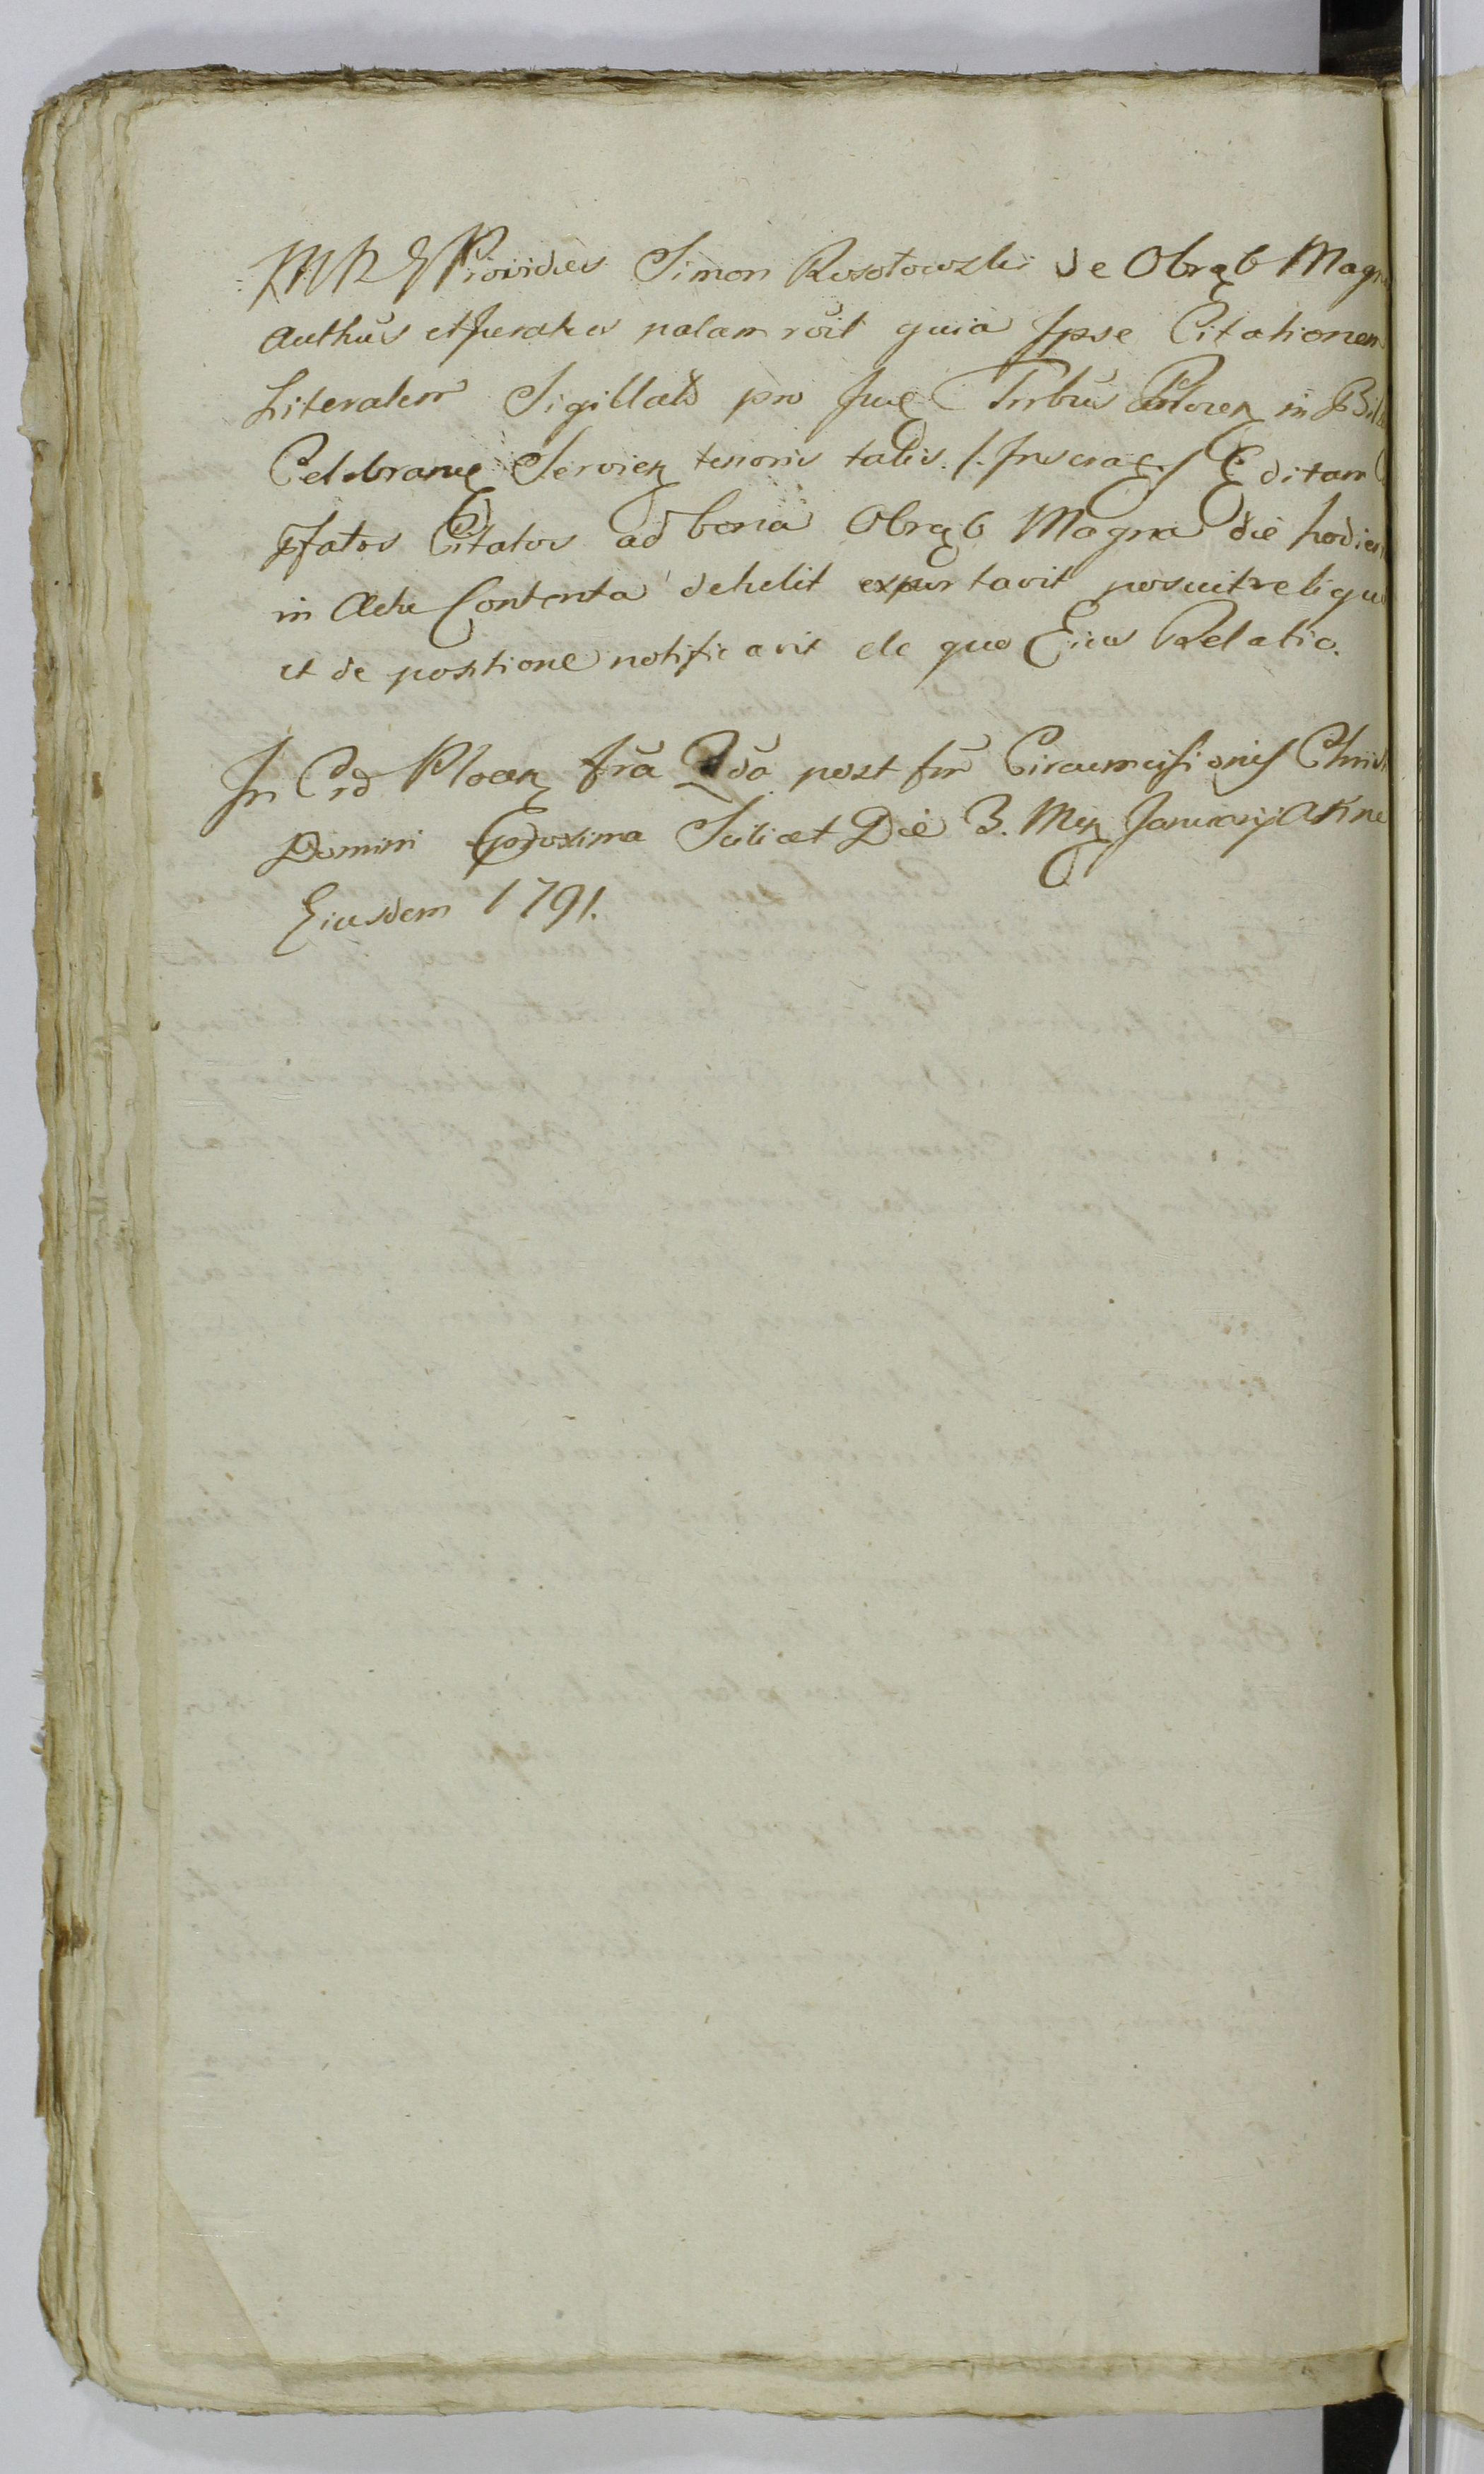 Providus Simon Rosołowski de Obrąb Magna
Authûs et Juratus palam rőit quia Ipse Citationem
Literalem Sigillatâ pro Tribûs Plocen in
Celebran Servien tenoris talis /. ./ Editam
pfatos Citatos ad bona Obrąb Magna die hodier
in Actu Contenta detulit exportavit posuit reliqu
et de positione notificavit de quo Eius Relatio.
In Plocen frã 2dã post fm Circumcisionis Christi
Domini proxima Scilicet Die 3. Men Januarij
Eiusdem 1791.